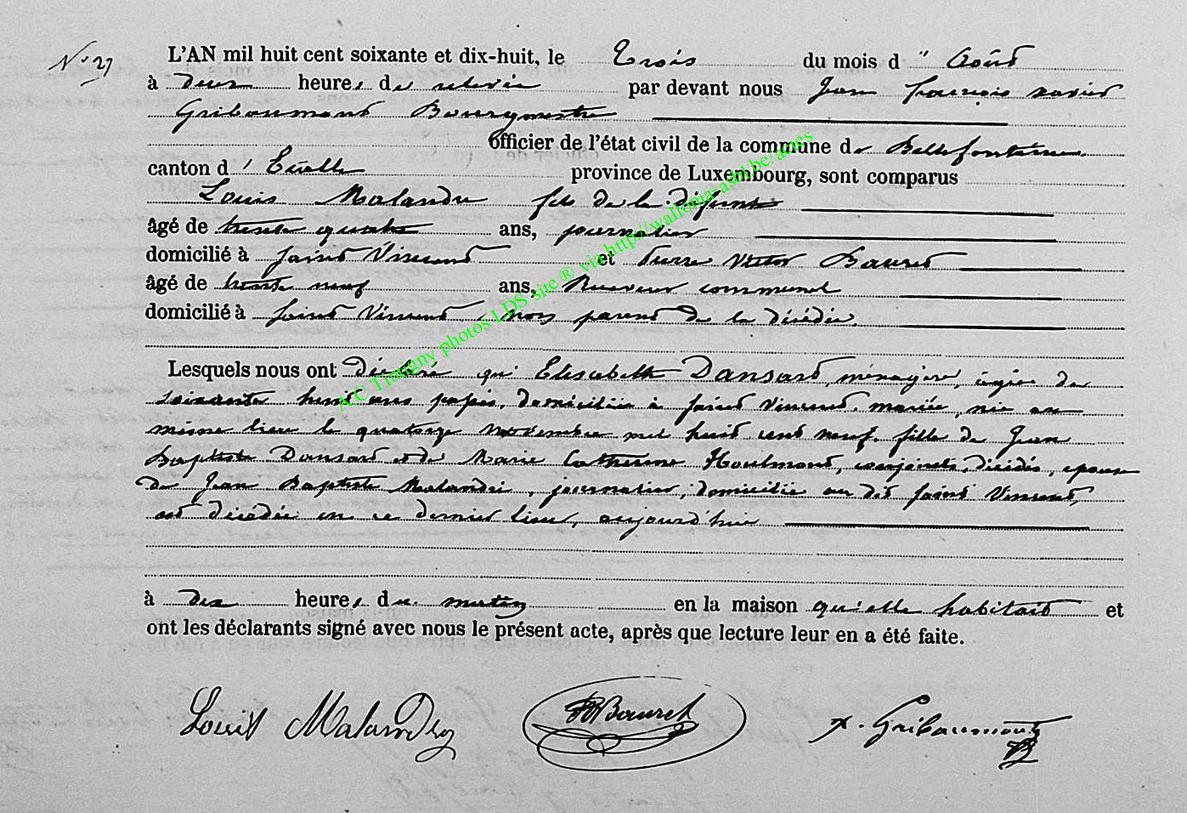 N° 27
L'AN mil huit cent soixante et dix-huit, le Trois du mois d " Août
à deux heures de relevée par devant nous Jean françois xavier
Gribaumont Bourgmestre
Officier de l'état civil de la commune de Bellefontaine
canton d' Etalle province de Luxembourg, sont comparus
Louis Malandré fils de la défunte
âgé de trente quatre ans, journalier
domicilié à Saint Vincent et Pierre Victor Bauret
âgé de trente neuf ans, Receveur communal
domicilié à Saint Vincent, non parent de la décédée
Lesquels nous ont déclaré qu' Elisabeth Dansart, ménagère, âgée de
soixante huit ans passés, domiciliée à Saint Vincent, mariée, née au
même lieu le quatorze novembre mil huit cent neuf, fille de Jean
Baptiste Dansart et de Marie Catherine Houlmont, conjoints, décédés, épouse
de Jean Baptiste Malandré, journalier, domicilié au dit Saint Vincent,
est décédée en ce dernier lieu, aujourd'hui
à dix heures du matin en la maison qu'elle habitait et
ont les déclarants signé avec nous le présent acte, après que lecture leur en a été faite.
Louis Malandré Bauret x. Gribaumont
A.C Tintigny photos LDS site ® via http://wallonia-asbl.be/actes